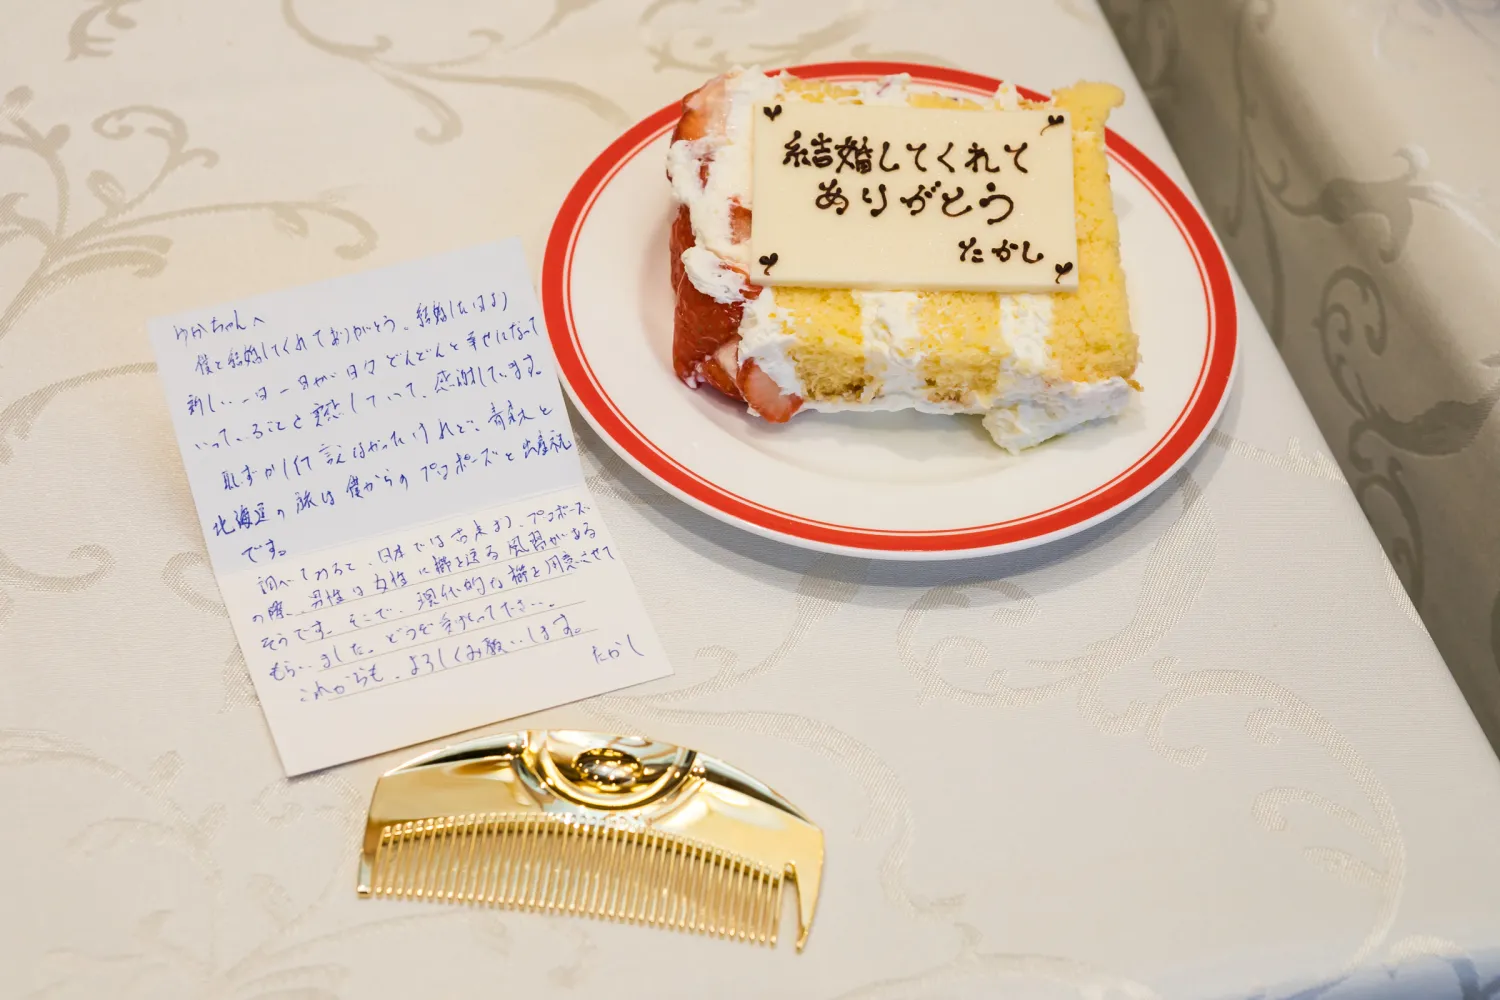 結婚してくれて
ありがとう
たかし
ゆかちゃんへ
僕と結婚してくれてありがとう。結婚した日より
新しい一日一日が日々どんどんと幸せになって
いっていることを実感していて、感謝しています。
恥ずかしくて言えなかったけれど、青森と
北海道の旅は僕からのプロポーズと出産祝
です。
調べてみると、日本では古来より、プロポーズ
の際、男性は女性に櫛を送る風習がある
そうです。そこで、現代的な櫛を用意させて
もらいました。どうぞ受けとって下さい。
これからも、よろしくお願いします。
たかし